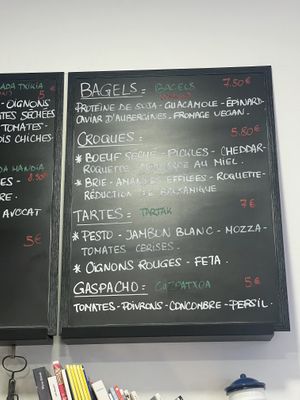 ADA TXIKIA
5 €
- OIGNONS
TES SÉCHÉES
TOMATES -
OIS CHICHES
DA HANDIA
ES - 8.50€
RE.
AVOCAT
5€
BAGELS : BAGELS 7.50€
PROTÉINE DE SOJA - GUACAMOLE - ÉPINARD-
CAVIAR D'AUBERGINES - FROMAGE VEGAN.
CROQUES : 5.80€
* BOEUF SÉCHÉ - PICKLES - CHEDDAR-
ROQUETTE AU MIEL.
* BRIE - AMANDES EFFILÉES - ROQUETTE-
RÉDUCTION DE BALSAMIQUE
TARTES : TARTAK 7€
* PESTO - JAMBON BLANC - MOZZA-
TOMATES CERISES.
* OIGNONS ROUGES - FETA.
GASPACHO : GAZPATXOA 5€
TOMATES - POIVRONS - CONCOMBRE - PERSIL.